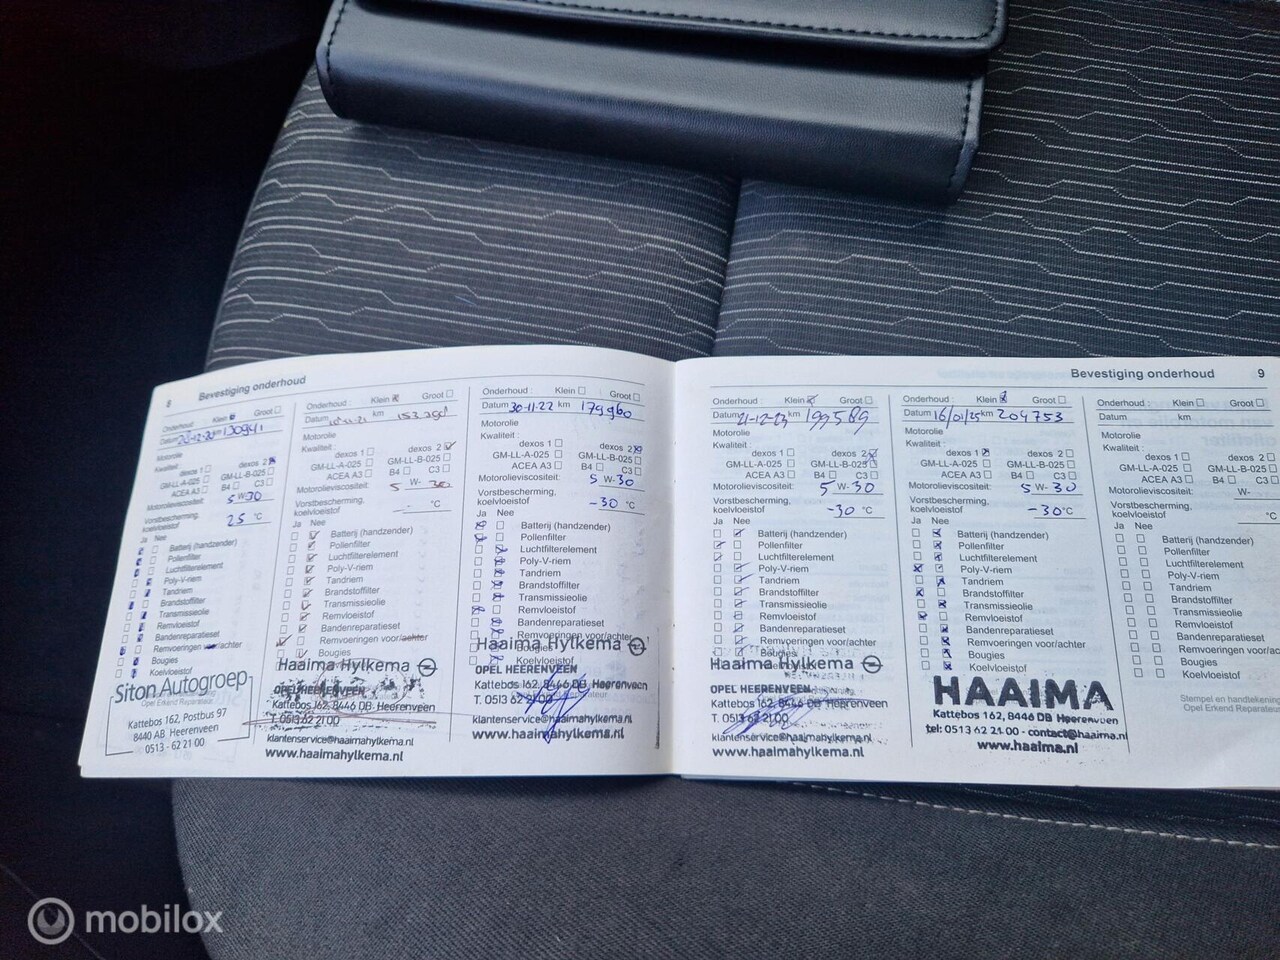 8 Bevestiging onderhoud
Onderhoud Klein Groot
Datum km 130941
Motorolie
Kwaliteit:
dexos 1 dexos 2
GM-LL-A-025 GM-LL-B-025
ACEA A3 B4 C3
Motorolieviscositeit: 5 W-30
Vorstbescherming,
koelvloeistof 25 °C
Ja Nee
Batterij (handzender)
Pollenfilter
Luchtfilterelement
Poly-V-riem
Tandriem
Brandstoffilter
Transmissieolie
Remvloeistof
Bandenreparatieset
Remvoeringen voor/achter
Bougies
Koelvloeistof
Siton Autogroep
Opel Erkend Reparateur
Kattebos 162, Postbus 97
8440 AB Heerenveen
0513 - 62 21 00
Onderhoud : Klein Groot
Datum km
Motorolie
Kwaliteit :
dexos 1 dexos 2
GM-LL-A-025 GM-LL-B-025
ACEA A3 B4 C3
Motorolieviscositeit: 5 W- 30
Vorstbescherming,
koelvloeistof - °C
Ja Nee
Batterij (handzender)
Pollenfilter
Luchtfilterelement
Poly-V-riem
Tandriem
Brandstoffilter
Transmissieolie
Remvloeistof
Bandenreparatieset
Remvoeringen voor/achter
Haaima Hylkema
OPEL HEERENVEEN
Kattebos 162, 8446 DB Heerenveen
T. 0513 62 21 00
klantenservice@haaimahylkema.nl
www.haaimahylkema.nl
Onderhoud : Klein Groot
Datum 30-11-22 km 179960
Motorolie
Kwaliteit :
dexos 1 dexos 2
GM-LL-A-025 GM-LL-B-025
ACEA A3 B4 C3
Motorolieviscositeit: 5 W-30
Vorstbescherming,
koelvloeistof -30 °C
Ja Nee
Batterij (handzender)
Pollenfilter
Luchtfilterelement
Poly-V-riem
Tandriem
Brandstoffilter
Transmissieolie
Remvloeistof
Bandenreparatieset
Remvoeringen voor/achter
Bougies
Koelvloeistof
Haaima Hylkema
OPEL HEERENVEEN
Kattebos 162, 8446 DB Heerenveen
T. 0513 62 21 00
klantenservice@haaimahylkema.nl
www.haaimahylkema.nl
Bevestiging onderhoud 9
Onderhoud : Klein Groot
Datum 21-12-23 km 199589
Motorolie
Kwaliteit :
dexos 1 dexos 2
GM-LL-A-025 GM-LL-B-025
ACEA A3 B4 C3
Motorolieviscositeit: 5 W-30
Vorstbescherming,
koelvloeistof -30 °C
Ja Nee
Batterij (handzender)
Pollenfilter
Luchtfilterelement
Poly-V-riem
Tandriem
Brandstoffilter
Transmissieolie
Remvloeistof
Bandenreparatieset
Remvoeringen voor/achter
Bougies
Haaima Hylkema
OPEL HEERENVEEN
Kattebos 162, 8446 DB Heerenveen
T. 0513 62 21 00
klantenservice@haaimahylkema.nl
www.haaimahylkema.nl
Onderhoud : Klein Groot
Datum 16/01/25 km 204753
Motorolie
Kwaliteit :
dexos 1 dexos 2
GM-LL-A-025 GM-LL-B-025
ACEA A3 B4 C3
Motorolieviscositeit: 5 W- 30
Vorstbescherming,
koelvloeistof -30 °C
Ja Nee
Batterij (handzender)
Pollenfilter
Luchtfilterelement
Poly-V-riem
Tandriem
Brandstoffilter
Transmissieolie
Remvloeistof
Bandenreparatieset
Remvoeringen voor/achter
Bougies
Koelvloeistof
HAAIMA
Kattebos 162, 8446 DB Heerenveen
tel: 0513 62 21 00 - contact@haaima.nl
www.haaima.nl
Onderhoud : Klein Groot
Datum km
Motorolie
Kwaliteit :
dexos 1 dexos 2
GM-LL-A-025 GM-LL-B-025
ACEA A3 B4 C3
Motorolieviscositeit: W-
Vorstbescherming,
koelvloeistof °C
Ja Nee
Batterij (handzender)
Pollenfilter
Luchtfilterelement
Poly-V-riem
Tandriem
Brandstoffilter
Transmissieolie
Remvloeistof
Bandenreparatieset
Remvoeringen voor/achter
Bougies
Koelvloeistof
Stempel en handtekening
Opel Erkend Reparateur
mobilox